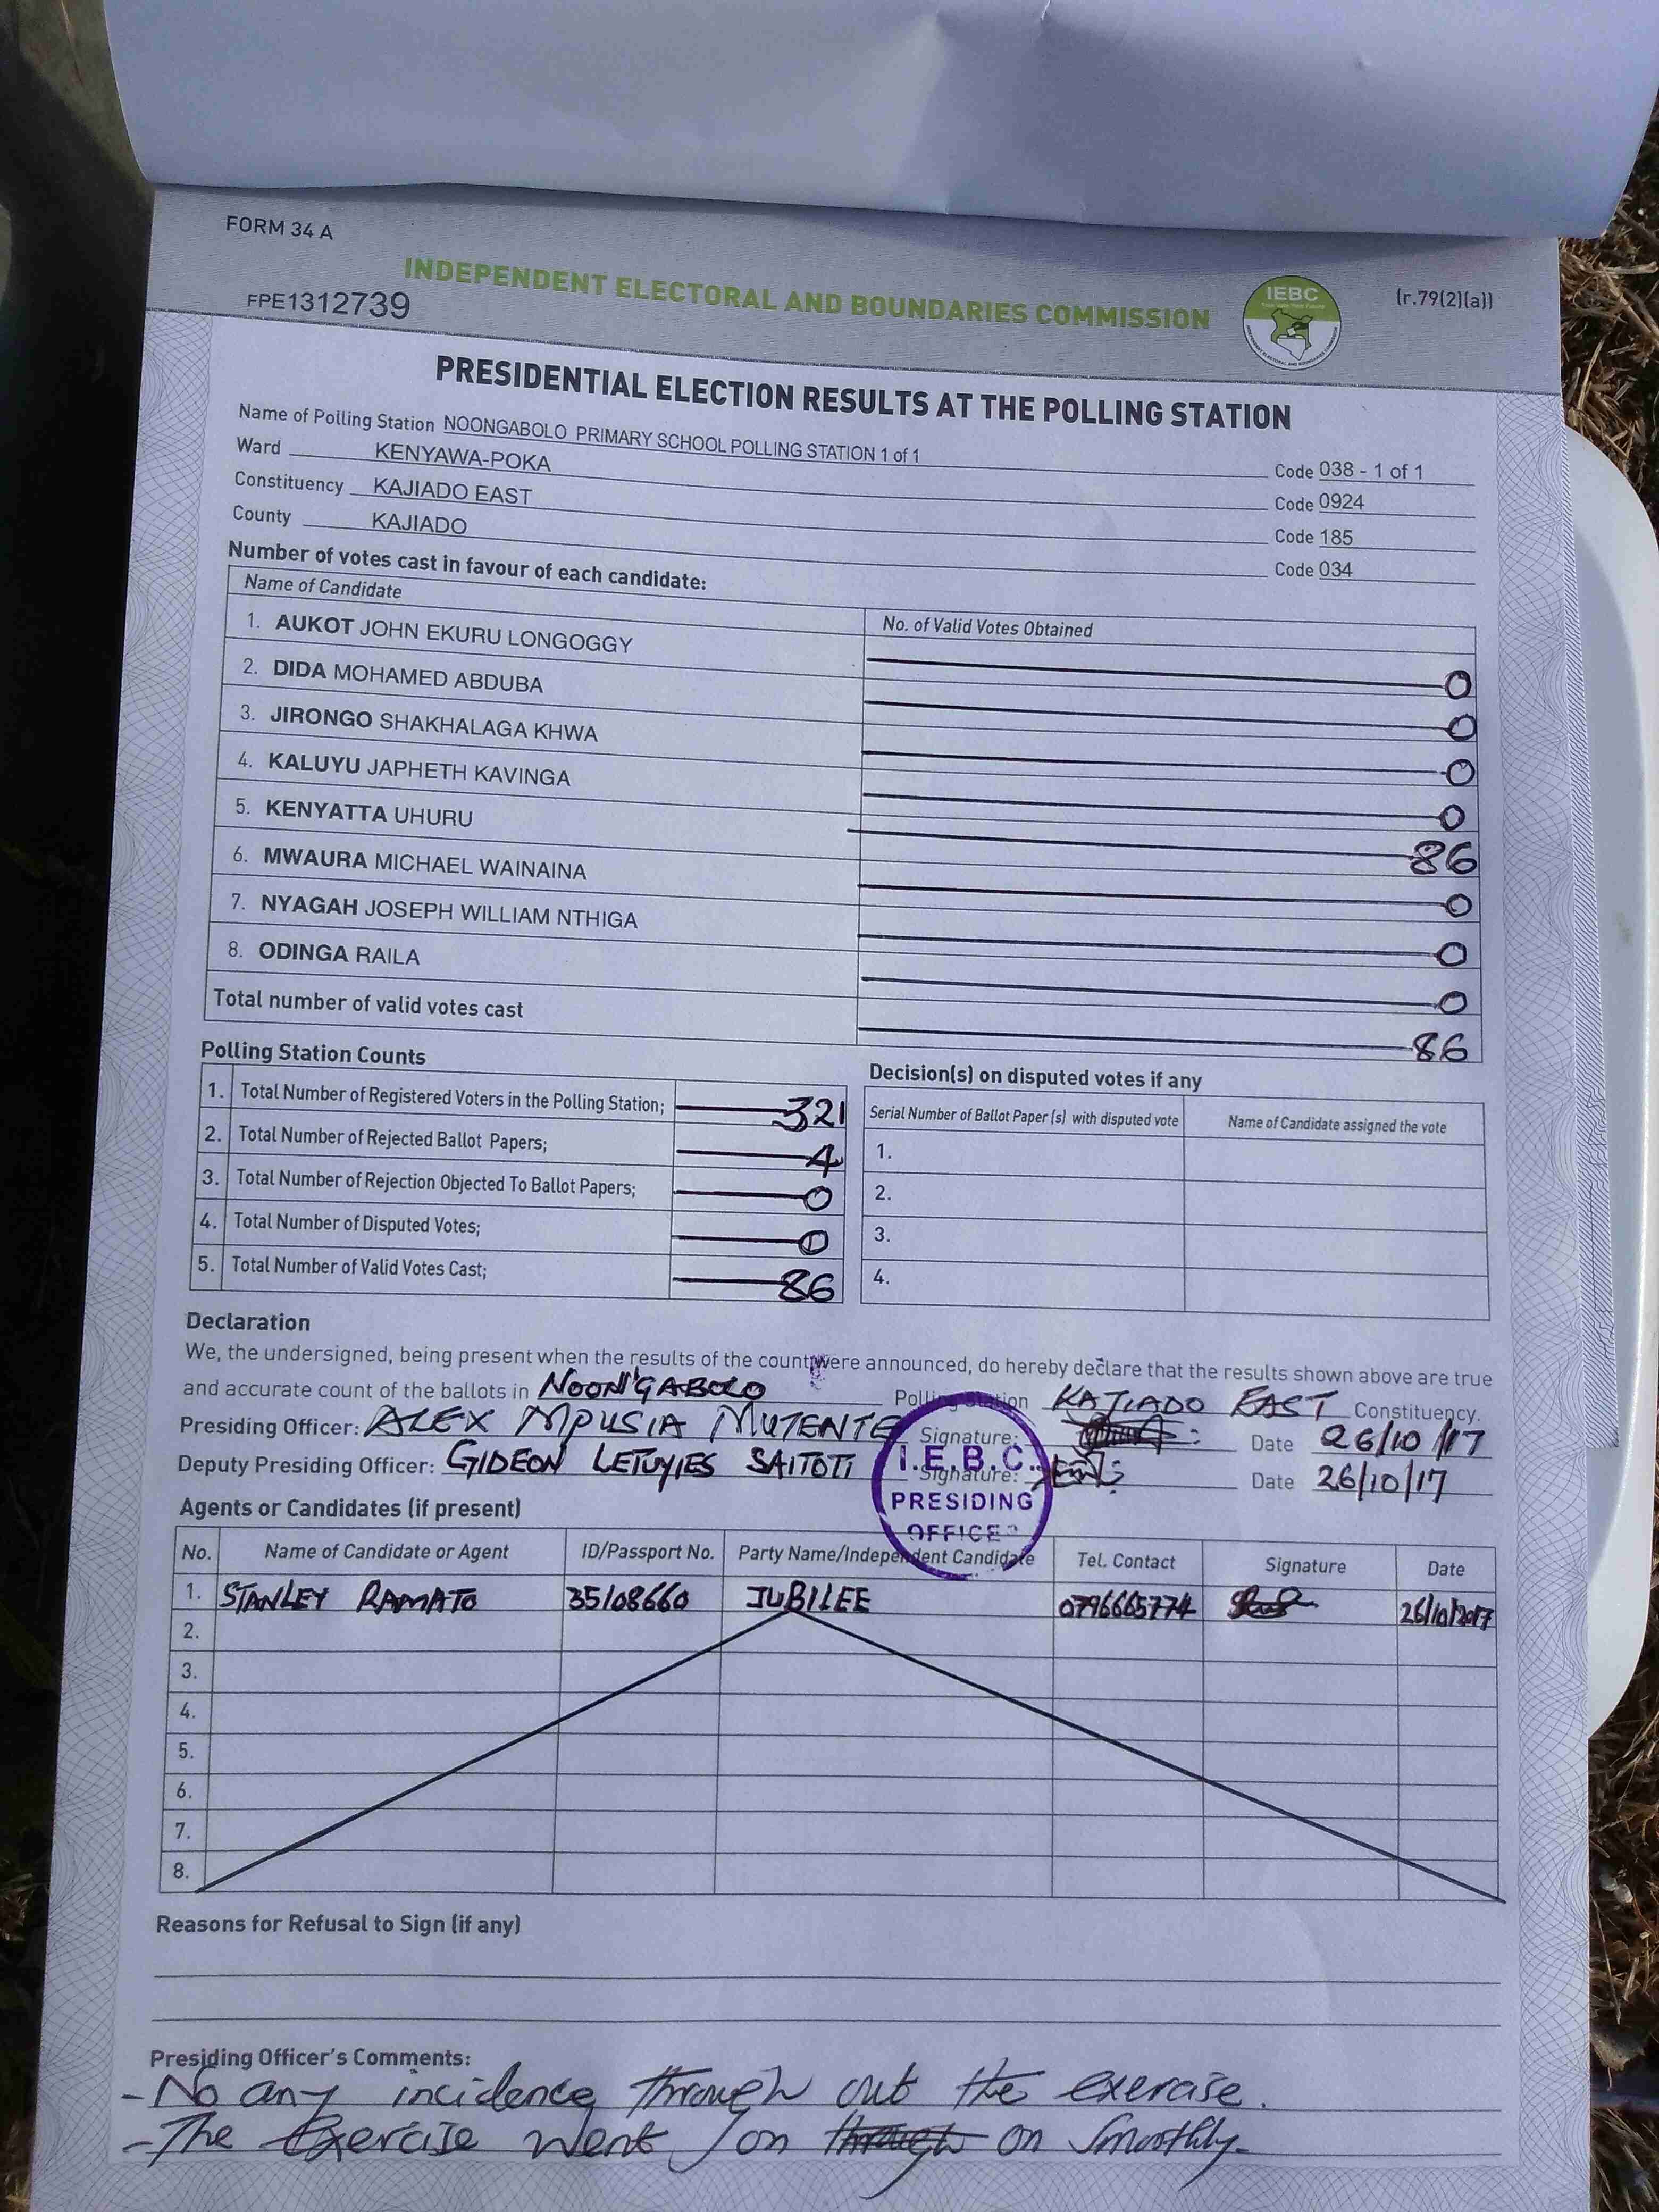 FORM 34 A
INDEPENDENT ELECTORAL AND BOUNDARIES COMMISSION
IEBC
(r.79(2)(a))
FPE1312739
PRESIDENTIAL ELECTION RESULTS AT THE POLLING STATION
Name of Polling Station NOONGABOLO PRIMARY SCHOOL POLLING STATION 1 of 1 Code 038 - 1 of 1
Ward KENYAWA-POKA Code 0924
Constituency KAJIADO EAST Code 185
County KAJIADO Code 034
Number of votes cast in favour of each candidate:
Name of Candidate No. of Valid Votes Obtained
1. AUKOT JOHN EKURU LONGOGGY 0
2. DIDA MOHAMED ABDUBA 0
3. JIRONGO SHAKHALAGA KHWA 0
4. KALUYU JAPHETH KAVINGA 0
5. KENYATTA UHURU 86
6. MWAURA MICHAEL WAINAINA 0
7. NYAGAH JOSEPH WILLIAM NTHIGA 0
8. ODINGA RAILA 0
Total number of valid votes cast 86
Polling Station Counts
1. Total Number of Registered Voters in the Polling Station; 321
2. Total Number of Rejected Ballot Papers; 4
3. Total Number of Rejection Objected To Ballot Papers; 0
4. Total Number of Disputed Votes; 0
5. Total Number of Valid Votes Cast; 86
Decision(s) on disputed votes if any
Serial Number of Ballot Paper (s) with disputed vote Name of Candidate assigned the vote
1.
2.
3.
4.
Declaration
We, the undersigned, being present when the results of the count were announced, do hereby declare that the results shown above are true
and accurate count of the ballots in NOONG'ABOLO Polling Station KAJIADO EAST Constituency.
Presiding Officer: ALEX MPUSIA MUTENTE Signature: Date 26/10/17
Deputy Presiding Officer: GIDEON LETUYIES SAITOTI Signature: Date 26/10/17
I.E.B.C.
PRESIDING
OFFICER
Agents or Candidates (if present)
No. Name of Candidate or Agent ID/Passport No. Party Name/Independent Candidate Tel. Contact Signature Date
1. STANLEY RAMATO 35108660 JUBILEE 0796665774 26/10/2017
2.
3.
4.
5.
6.
7.
8.
Reasons for Refusal to Sign (if any)
Presiding Officer's Comments:
- No any incidence through out the exercise.
- The Exercise went on through on smoothly.